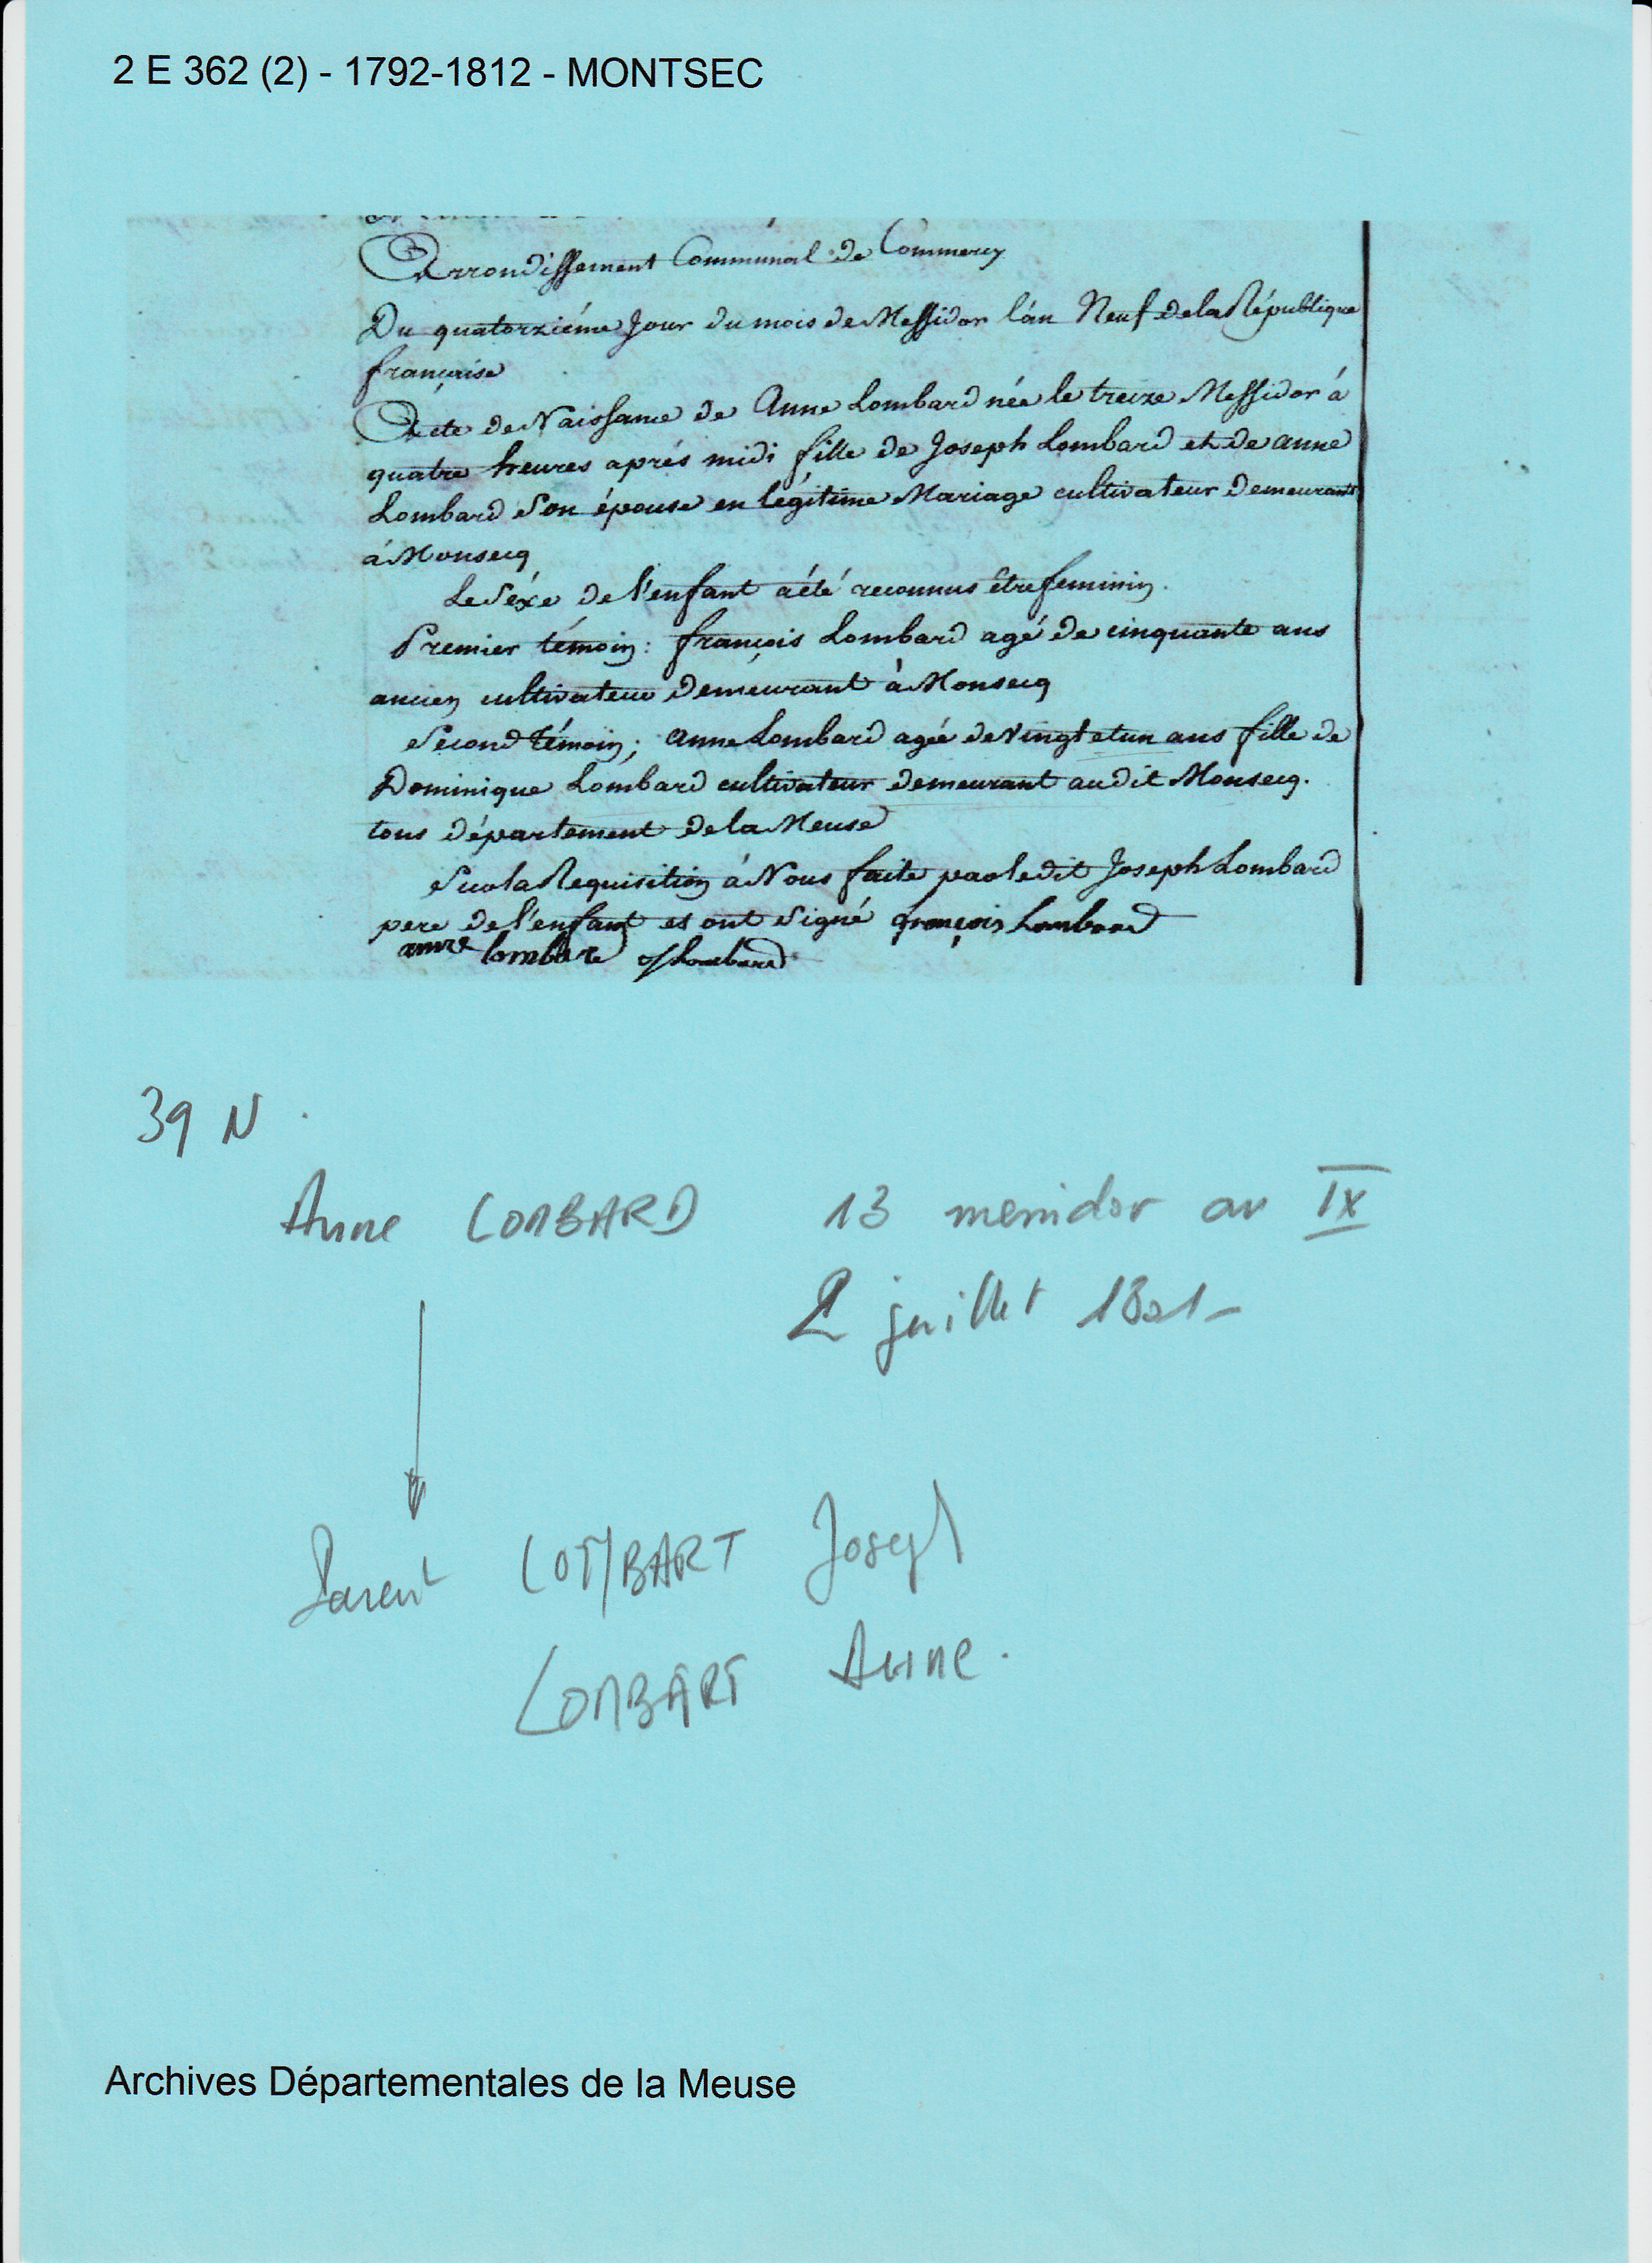 2 E 362 (2) - 1792-1812 - MONTSEC
Arrondissement Communal de Commercy
Du quatorziéme Jour du mois de Messidor l'án Neuf de la République
française
Acte de Naissance de Anne Lombard née le treize Messidor á
quatre heures aprés midi fille de Joseph Lombard et de anne
Lombard Son épouse en légitime Mariage cultivateur demeurant
á Monsecq
Le Séxe de l'enfant a été reconnus être feminin.
Premier témoin : françois Lombard agé de cinquante ans
ancien cultivateur demeurant á Monsecq
Second témoin ; Anne Lombard agée de vingt et un ans fille de
Dominique Lombard cultivateur demeurant audit Monsecq.
tous département de la Meuse
Sur la Requisition á Nous faite par ledit Joseph Lombard
pere de l'enfant et ont Signé françois Lombard
anne lombard J Lombard
39 N
Anne LOMBARD 13 messidor an IX
2 juillet 1801
Parent LOMBART Joseph
LOMBART Anne.
Archives Départementales de la Meuse